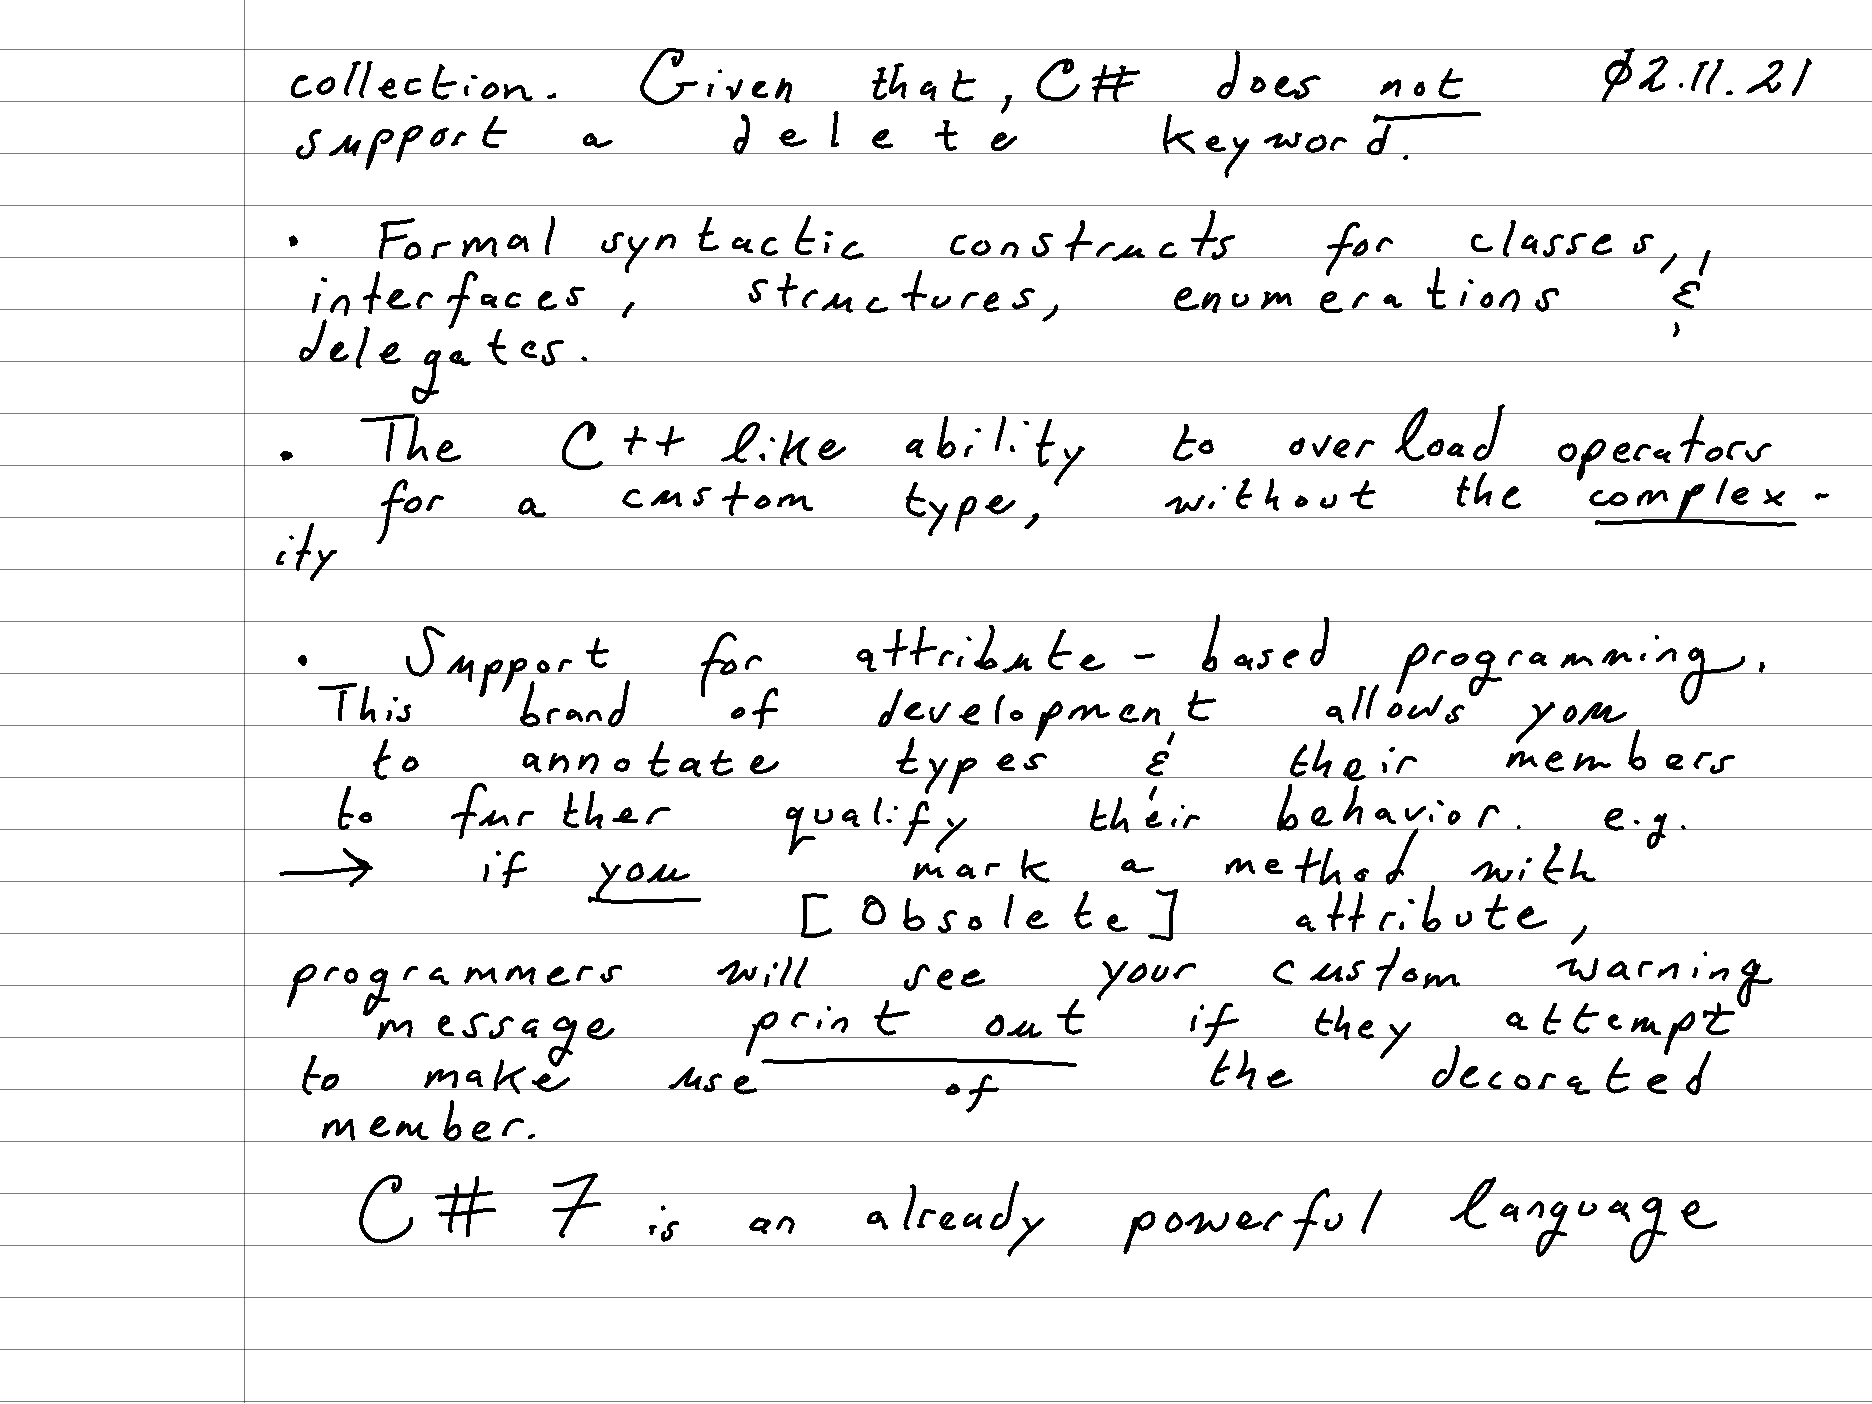 collection. Given that, C# does not 02.11.21
support a delete keyword.
• Formal syntactic constructs for classes,
interfaces, structures, enumerations &
delegates.
• The C++ like ability to overload operators
for a custom type, without the complex-
ity
• Support for attribute-based programming.
This brand of development allows you
to annotate types & their members
to further qualify their behavior. e.g.
→ if you mark a method with
[Obsolete] attribute,
programmers will see your custom warning
message print out if they attempt
to make use of the decorated
member.
C# 7 is an already powerful language